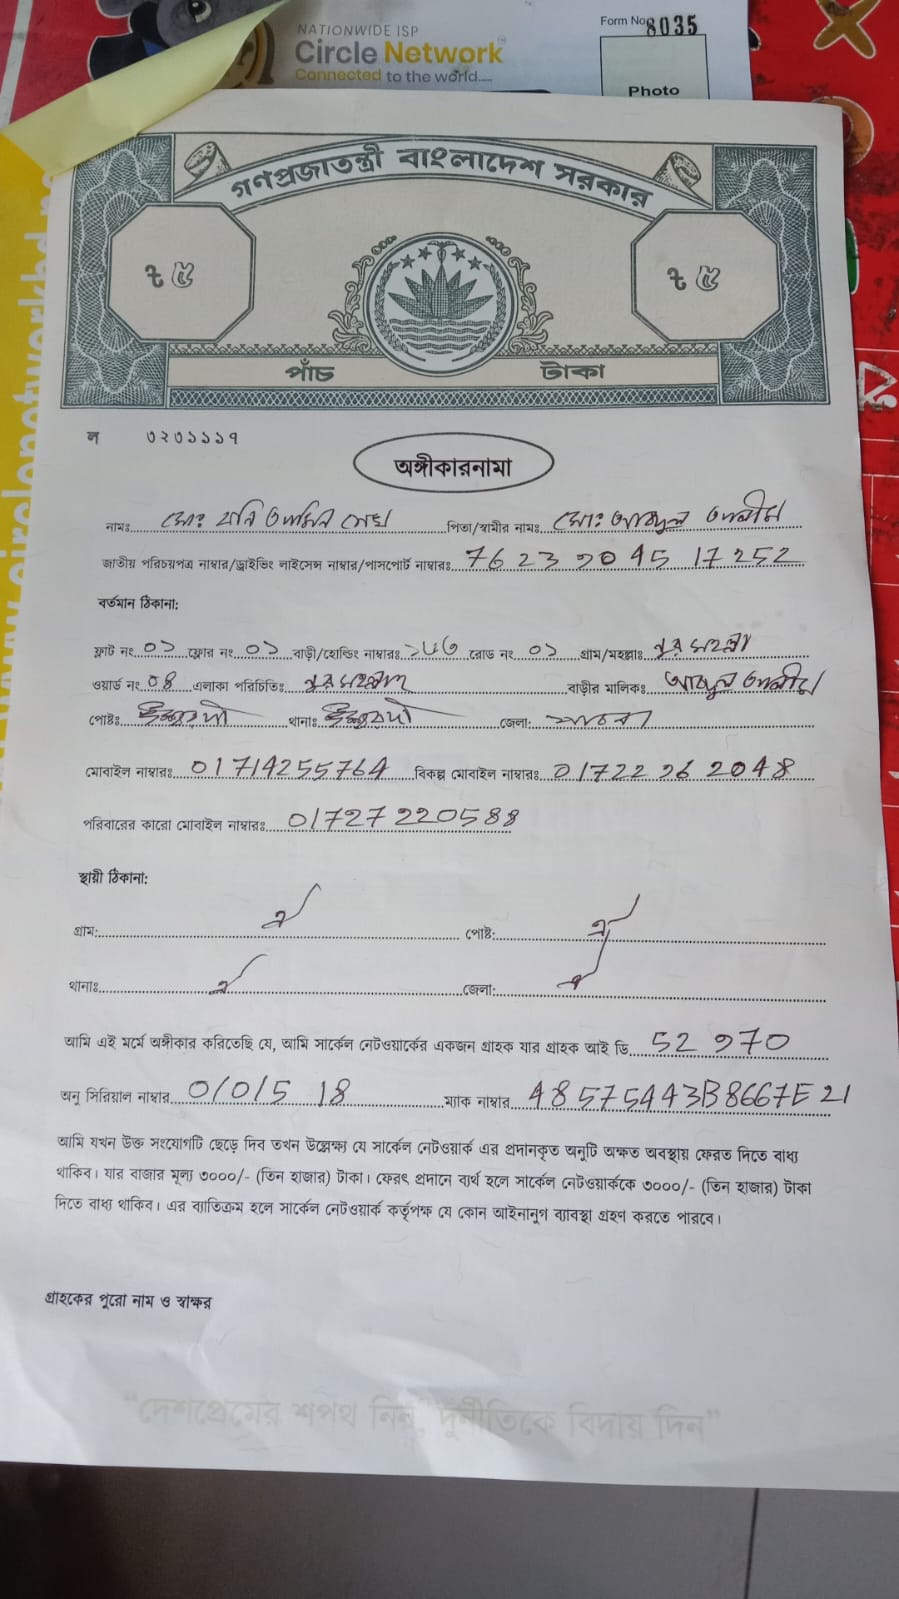 NATIONWIDE ISP
Circle Network
Connected to the world....
Form No 8035
Photo
গণপ্রজাতন্ত্রী বাংলাদেশ সরকার
৳ ৫ ৳ ৫
পাঁচ টাকা
ল ৩২৩১১১৭
অঙ্গীকারনামা
নামঃ মোঃ পিতা/স্বামীর নামঃ মোঃ আব্দুল
জাতীয় পরিচয়পত্র নাম্বার/ড্রাইভিং লাইসেন্স নাম্বার/পাসপোর্ট নাম্বারঃ
বর্তমান ঠিকানা:
ফ্লাট নং ০১ ফ্লোর নং ০১ বাড়ী/হোল্ডিং নাম্বারঃ রোড নং ০১ গ্রাম/মহল্লাঃ
ওয়ার্ড নং ০৪ এলাকা পরিচিতিঃ বাড়ীর মালিকঃ আব্দুল
পোষ্টঃ ঈশ্বরদী থানাঃ ঈশ্বরদী জেলা: পাবনা
মোবাইল নাম্বারঃ 01714255764 বিকল্প মোবাইল নাম্বারঃ
পরিবারের কারো মোবাইল নাম্বারঃ 01727220588
স্থায়ী ঠিকানা:
গ্রাম: ঐ পোষ্ট: ঐ
থানাঃ ঐ জেলা: ঐ
আমি এই মর্মে অঙ্গীকার করিতেছি যে, আমি সার্কেল নেটওয়ার্কের একজন গ্রাহক যার গ্রাহক আই ডি
অনু সিরিয়াল নাম্বার ম্যাক নাম্বার 48575443B8667E21
আমি যখন উক্ত সংযোগটি ছেড়ে দিব তখন উল্লেক্ষ্য যে সার্কেল নেটওয়ার্ক এর প্রদানকৃত অনুটি অক্ষত অবস্থায় ফেরত দিতে বাধ্য
থাকিব। যার বাজার মূল্য ৩০০০/- (তিন হাজার) টাকা। ফেরৎ প্রদানে ব্যর্থ হলে সার্কেল নেটওয়ার্ককে ৩০০০/- (তিন হাজার) টাকা
দিতে বাধ্য থাকিব। এর ব্যতিক্রম হলে সার্কেল নেটওয়ার্ক কর্তৃপক্ষ যে কোন আইনানুগ ব্যাবস্থা গ্রহণ করতে পারবে।
গ্রাহকের পুরো নাম ও স্বাক্ষর
“দেশপ্রেমের শপথ নিন, দুর্নীতিকে বিদায় দিন”